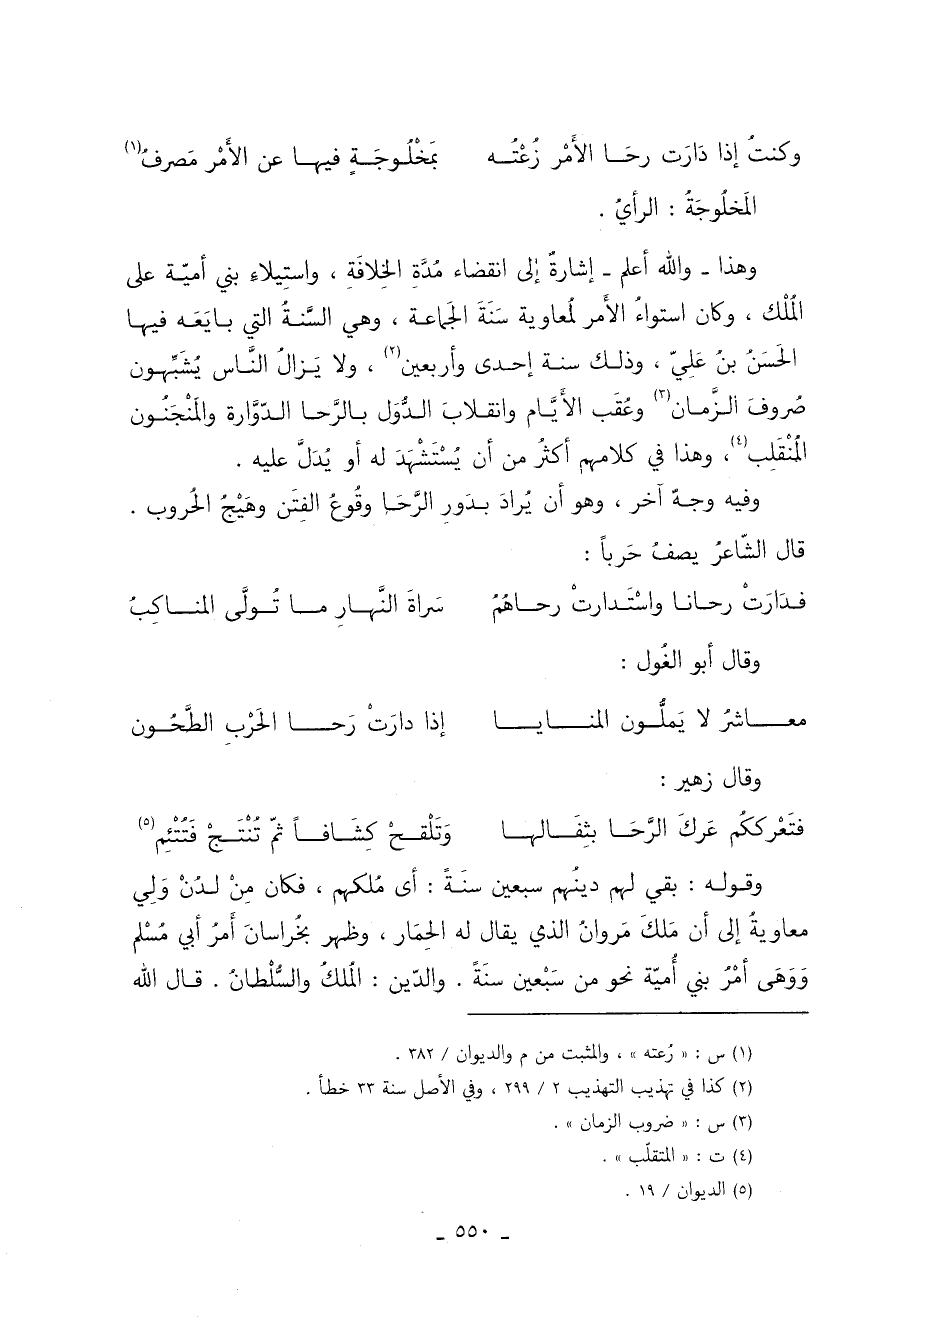 وكنتُ إذا دَارَت رحَا الأَمْر زُعْتُه بمَخْلُوجَةٍ فيها عن الأَمْر مَصرفُ(١)
المَخلُوجَةُ : الرأيُ .
وهذا ـ والله أعلم ـ إشارةٌ إلى انقضاء مُدَّة الخِلافَةِ ، واستِيلاءِ بني أميّة على
المُلْك ، وكان استواءُ الأَمر لمُعاوية سَنَةَ الجَماعة ، وهي السَّنةُ التي بايَعَه فيها
الحَسَنُ بنُ عَليّ ، وذلك سنة إحدى وأربعين(٢) ، ولا يَزالُ النَّاس يُشَبِّهون
صُروفَ الزَّمان(٣) وعُقَب الأَيَّام وانقلابَ الدُّوَل بالرَّحا الدّوَّارة والمَنْجَنُون
المُنْقَلِب(٤)، وهذا في كلامهم أكثرُ من أن يُسْتَشْهَدَ له أو يُدَلَّ عليه .
وفيه وجهٌ آخر ، وهو أن يُرادَ بدَور الرَّحَا وقُوعُ الفِتَن وهَيْجُ الحُروب .
قال الشّاعرُ يصفُ حَرباً :
فدَارَتْ رحانا واسْتَدارتْ رحاهُمُ سَراةَ النَّهارِ ما تُولَّى المناكِبُ
وقال أبو الغُول :
معاشرُ لا يَملُّون المنايا إذا دارَتْ رَحا الحَرْبِ الطَّحُون
وقال زهير :
فتَعْرككُم عَركَ الرَّحَا بثِفَالها وتَلْقحْ كِشَافاً ثمّ تُنْتَجْ فتُتْئِم(٥)
وقوله : بقي لهم دينُهم سبعين سنَةً : أى مُلكهم ، فكان مِنْ لدُنْ وَلي
معاويةُ إلى أن مَلكَ مَروانُ الذي يقال له الحِمَار ، وظهر بخُراسانَ أمرُ أبي مُسْلم
وَوَهَى أمْرُ بني أُميّة نحو من سَبْعين سنَةً . والدّين : المُلكُ والسُّلْطانُ . قال الله
(١) س : « رُعته » ، والمثبت من م والديوان / ٣٨٢ .
(٢) كذا في تهذيب التهذيب ٢ / ٢٩٩ ، وفي الأصل سنة ٣٣ خطأ .
(٣) س : « ضروب الزمان » .
(٤) ت : « المتقلّب » .
(٥) الديوان / ١٩ .
ـ ٥٥٠ ـ